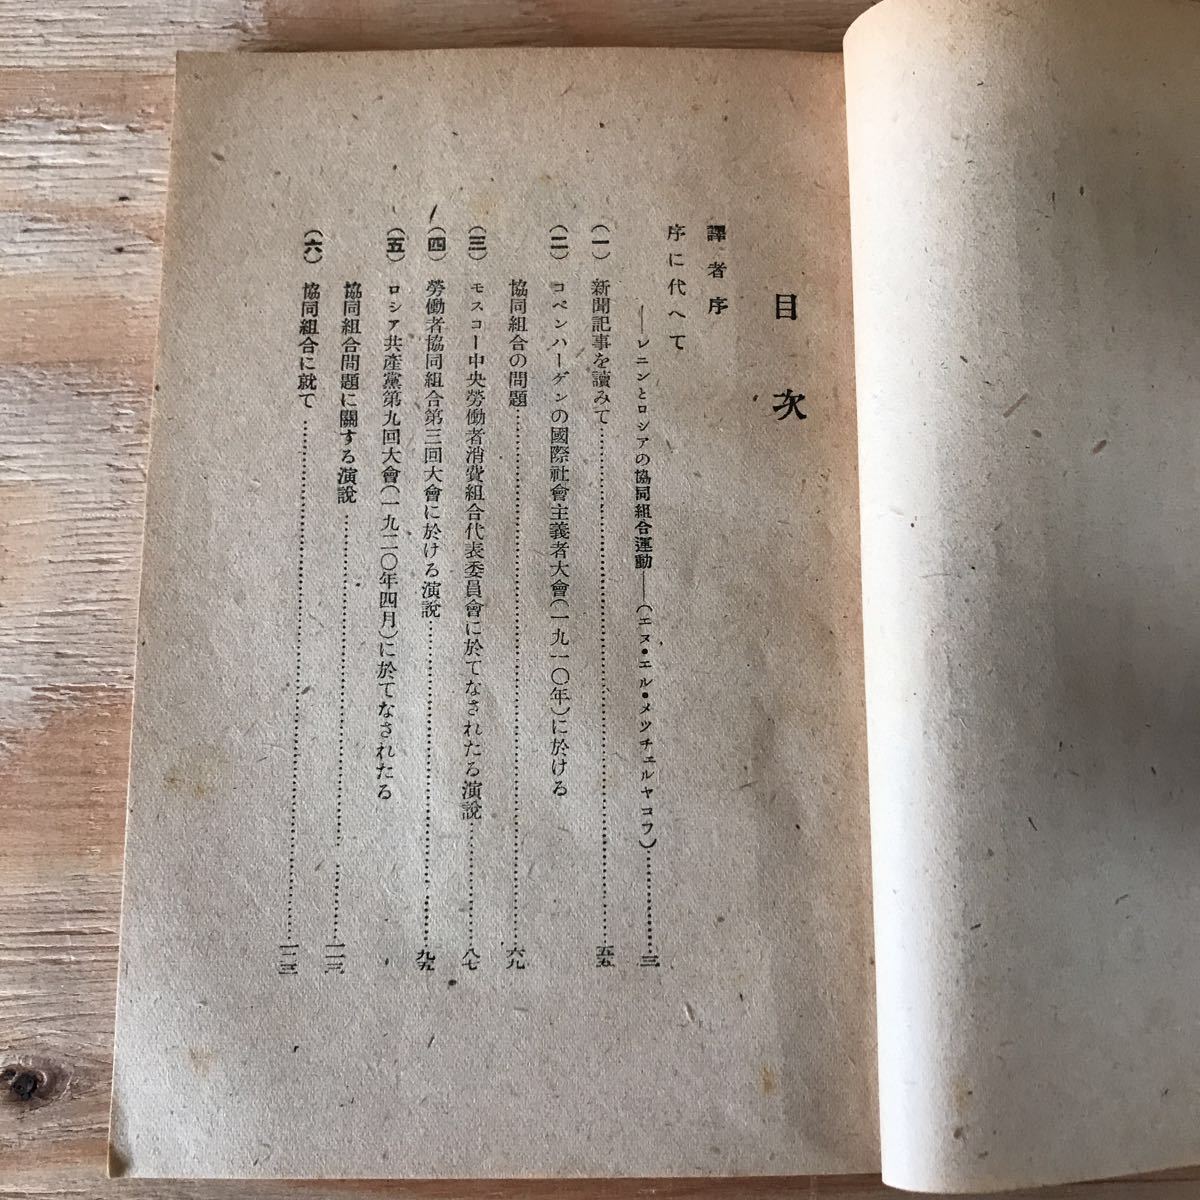 目次
譯者序
序に代へて
――レニンとロシアの協同組合運動――(エヌ・エル・メツチエルヤコフ)……三
(一) 新聞記事を讀みて……五五
(二) コペンハーゲンの國際社會主義者大會(一九一〇年)に於ける
協同組合の問題……六九
(三) モスコー中央勞働者消費組合代表委員會に於てなされたる演說……八七
(四) 勞働者協同組合第三回大會に於ける演說……九五
(五) ロシア共產黨第九回大會(一九二〇年四月)に於てなされたる
協同組合問題に關する演說……
(六) 協同組合に就て……